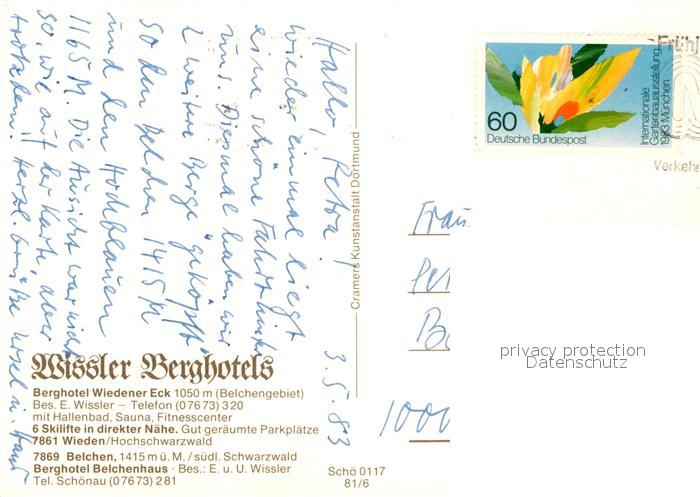 Hallo, Petra!
3.5.83
wieder einmal liegt
eine schöne Fahrt hinter
uns. Diesmal haben wir
2 weitere Berge "geköpft"
so den Belchen 1415 M
und den Hochblauen
1165 M. Die Aussicht war nicht
so, wie auf der Karte aber
trotzdem!! Herzl. Grüße Ursel u.
Wissler Berghotels
Berghotel Wiedener Eck 1050 m (Belchengebiet)
Bes. E. Wissler – Telefon (07673) 320
mit Hallenbad, Sauna, Fitnesscenter
6 Skilifte in direkter Nähe. Gut geräumte Parkplätze
7861 Wieden/Hochschwarzwald
7869 Belchen, 1415 m ü. M. / südl. Schwarzwald
Berghotel Belchenhaus · Bes.: E. u. U. Wissler
Tel. Schönau (07673) 281
Schö 0117
81/6
Cramers Kunstanstalt Dortmund
60
Deutsche Bundespost
Internationale
Gartenbauausstellung
1983 München
Frühj
Verkehr
Frau
Pet
Be
1000
privacy protection
Datenschutz